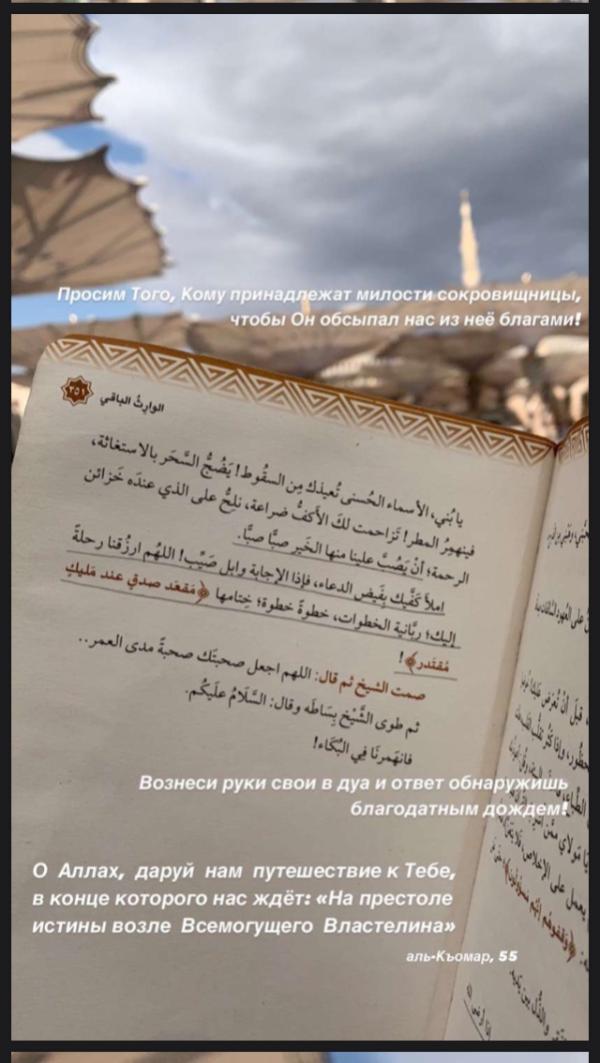 Просим Того, Кому принадлежат милости сокровищницы,
чтобы Он обсыпал нас из неё благами!
٣٥١
الوارِثُ الباقي
يا بُني، الأسماء الحُسنى تُعيذك مِن السقُوط! يَضُجُّ السَّحَر بالاستغاثة،
فينهمِرُ المطر! تَزاحمت لكَ الأكفُّ ضراعة، نلِحُّ على الذي عندَه خَزائن
الرحمة؛ أنْ يَصُبَّ علينا منها الخَير صبًّا صبًّا.
املأ كَفَّيك بِفَيض الدعاء، فإذا الإجابة وابل صَيِّب! اللهُم ارزُقنا رحلةً
إليك؛ ربَّانية الخطوات، خطوةً خطوة؛ خِتامها ﴿مَقعَد صدقٍ عند مَليكٍ
مُقتدر﴾!
صمت الشيخ ثم قال: اللهم اجعل صحبتَك صحبةً مدى العمر..
ثم طوى الشَّيْخ بِسَاطَه وقال: السَّلَامُ علَيكُم.
فانهَمرنَا فِي البُكَاء!
Вознеси руки свои в дуа и ответ обнаружишь
благодатным дождем!
О Аллах, даруй нам путешествие к Тебе,
в конце которого нас ждёт: «На престоле
истины возле Всемогущего Властелина»
аль-Къомар, 55